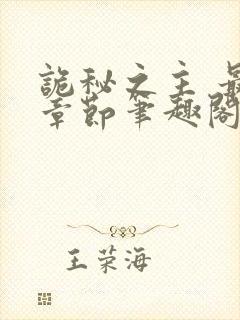 詭秘之主 最
章節筆趣閣
王荣海